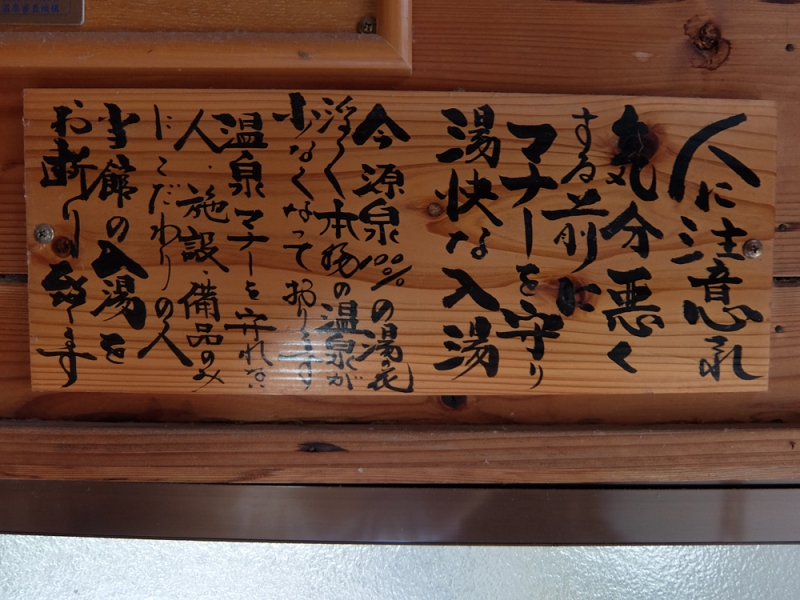 人に注意され
気分悪く
する前に
マナーを守り
湯快な入湯
今源泉100%の湯の花
浮く本物の温泉が
少なくなっております
温泉マナーを守れない
人、施設、備品のみ
にこだわりの人
当館の入湯を
お断り致します